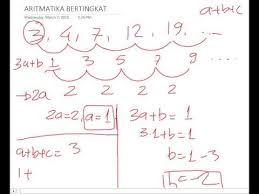 ARITMATIKA BERTINGKAT
a+b+c
3, 4, 7, 12, 19, ...
3a+b 1 3 5 7 9
→2a 2 2 2 2
2a=2, a=1
3a+b=1
3.1+b=1
b=1-3
b=-2
a+b+c=3
1+